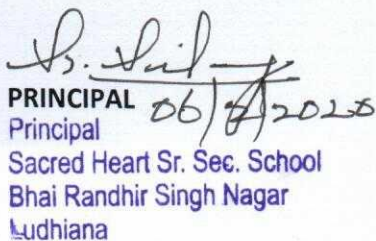 PRINCIPAL
Principal
Sacred Heart Sr. Sec. School
Bhai Randhir Singh Nagar
Ludhiana